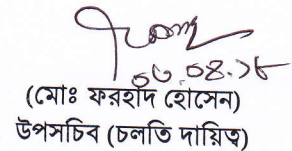 ০৮.০৪.১৮
(মোঃ ফরহাদ হোসেন)
উপসচিব (চলতি দায়িত্ব)